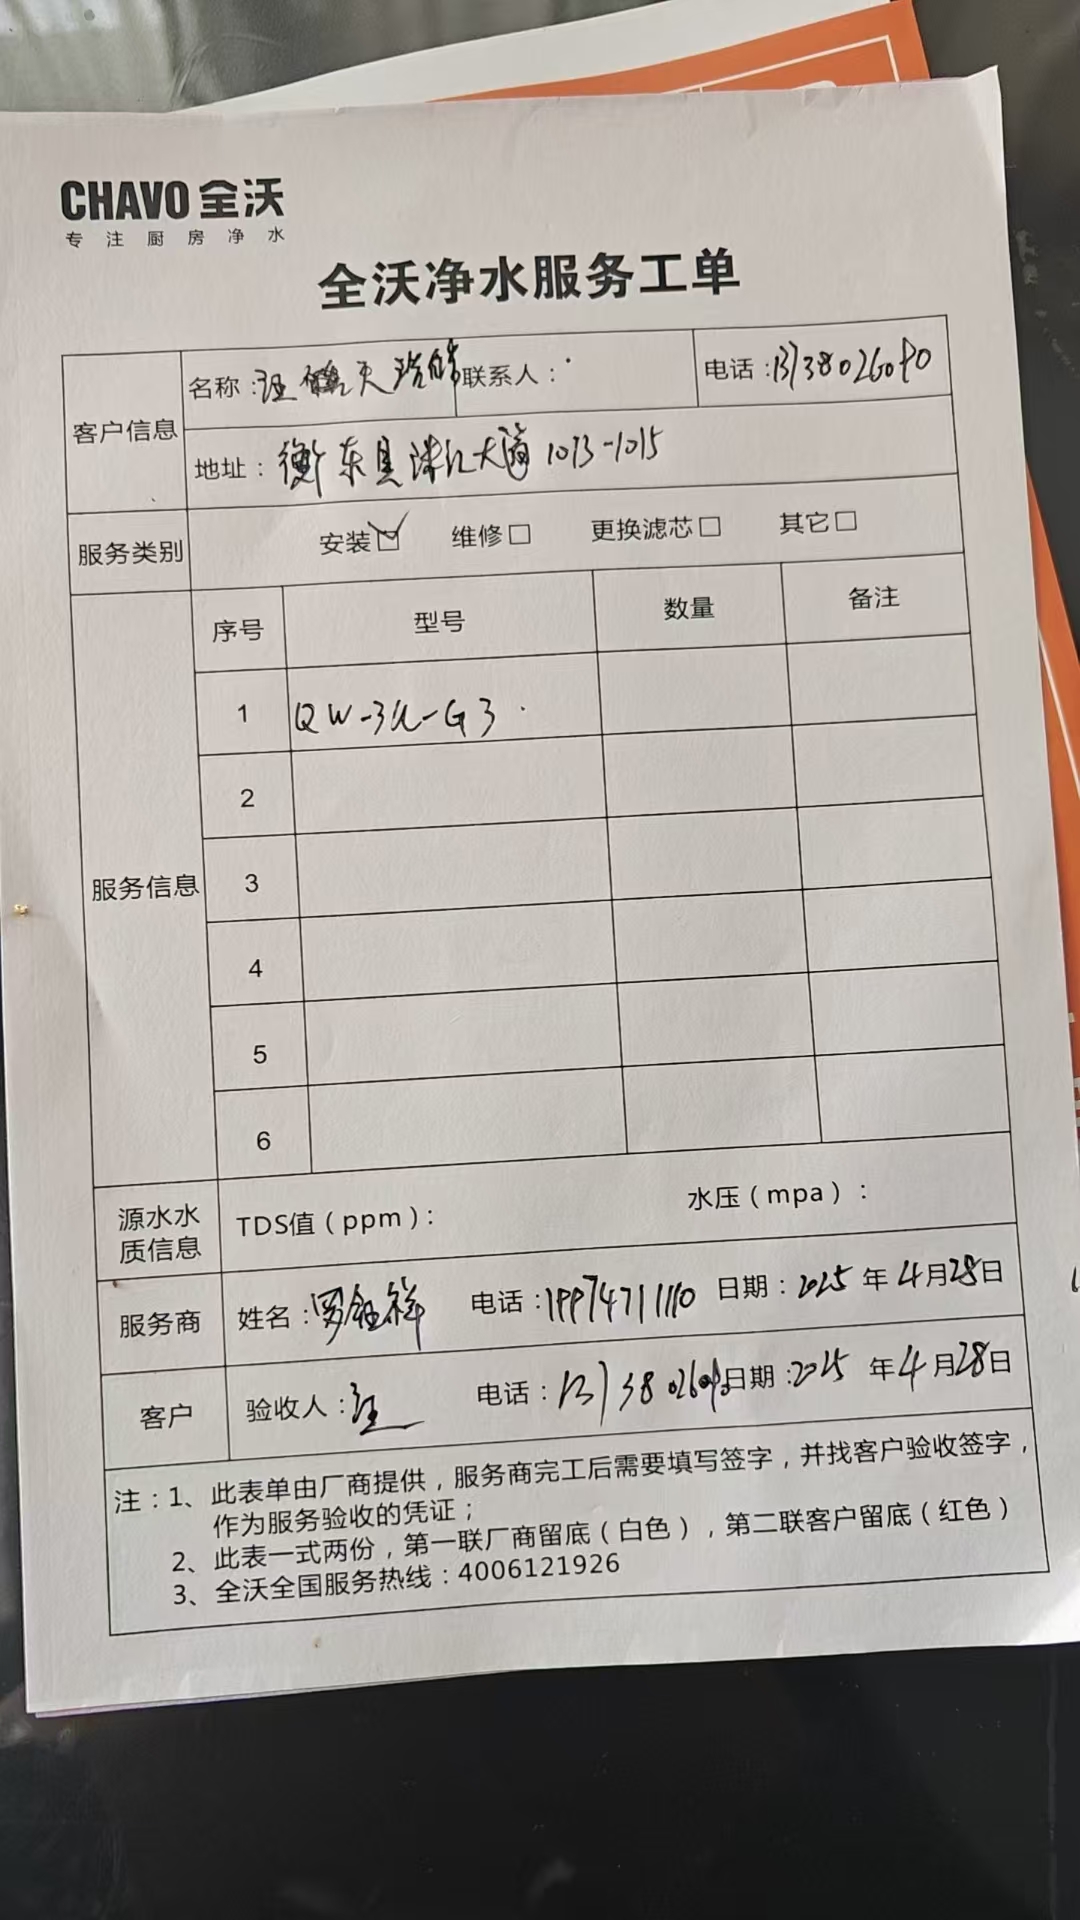 CHAVO 全沃
专注厨房净水
全沃净水服务工单
客户信息
名称：汪 天 联系人： 电话：13738026090
地址：衡东县珠江大道1013-1015
服务类别 安装☑ 维修□ 更换滤芯□ 其它□
服务信息
序号 型号 数量 备注
1 QW-3U-G3
2
3
4
5
6
源水水质信息 TDS值（ppm）： 水压（mpa）：
服务商 姓名：罗钰祥 电话：19974711110 日期：2025年4月28日
客户 验收人：汪 电话：13738026090 日期：2025年4月28日
注：1、此表单由厂商提供，服务商完工后需要填写签字，并找客户验收签字，
作为服务验收的凭证；
2、此表一式两份，第一联厂商留底（白色），第二联客户留底（红色）
3、全沃全国服务热线：4006121926